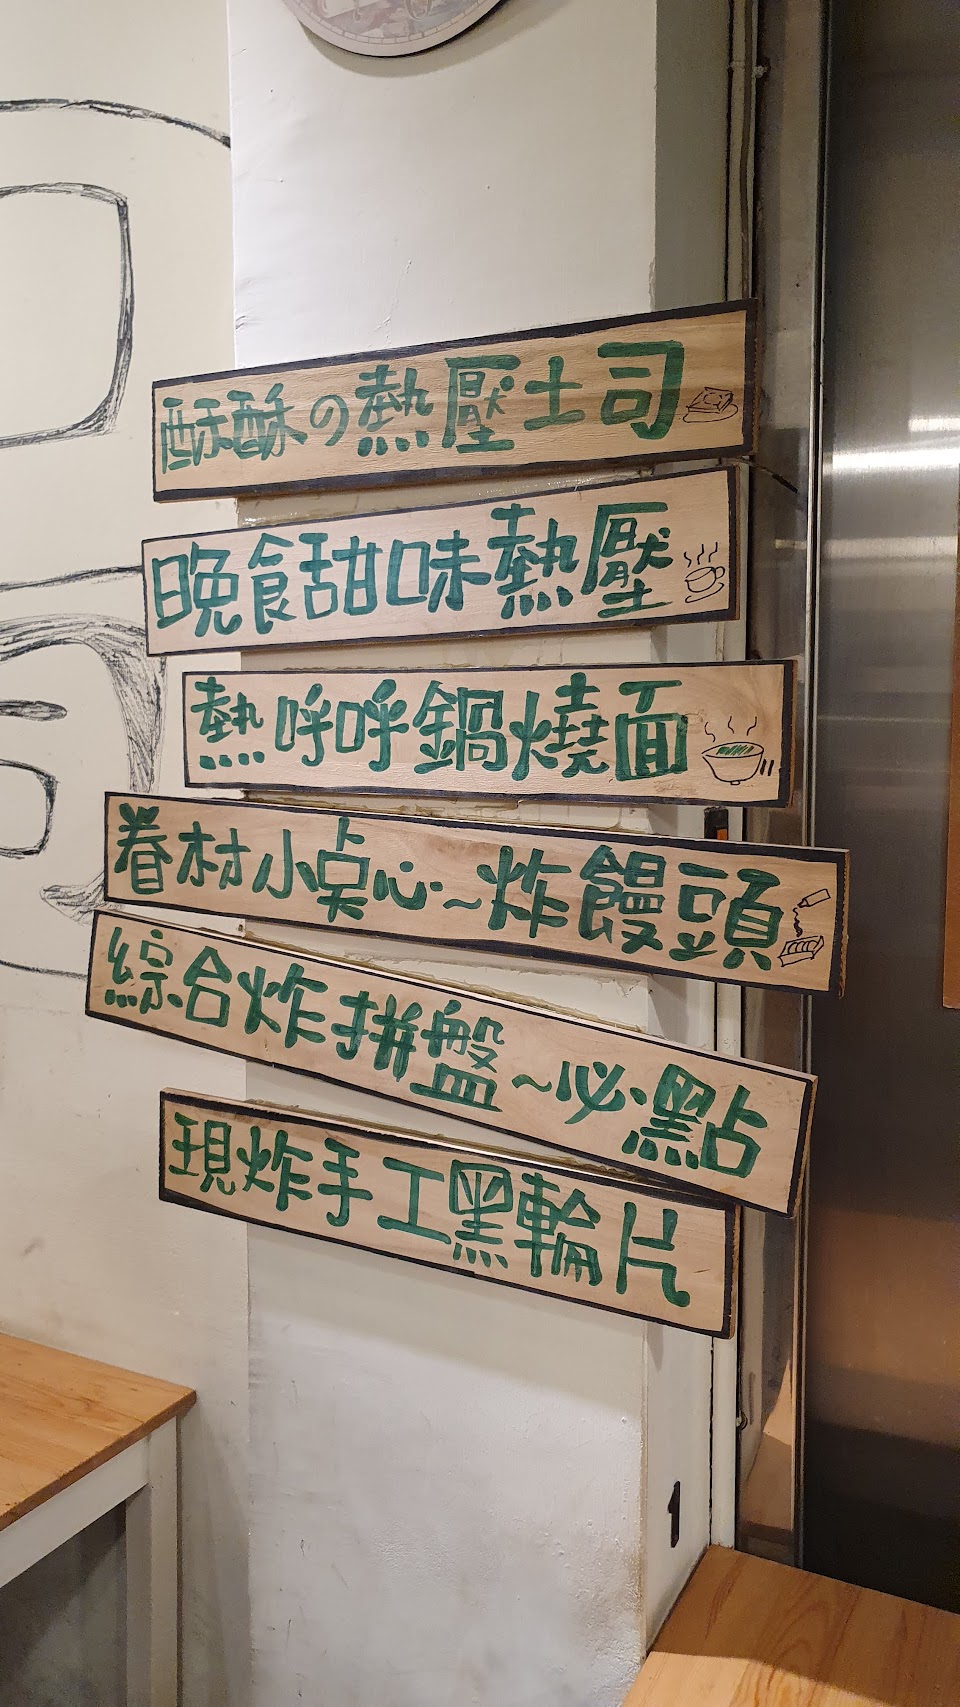 酥酥の熱壓土司
晚食甜味熱壓
熱呼呼鍋燒面
眷村小桌心~炸饅頭
綜合炸拼盤~必點
現炸手工黑輪片